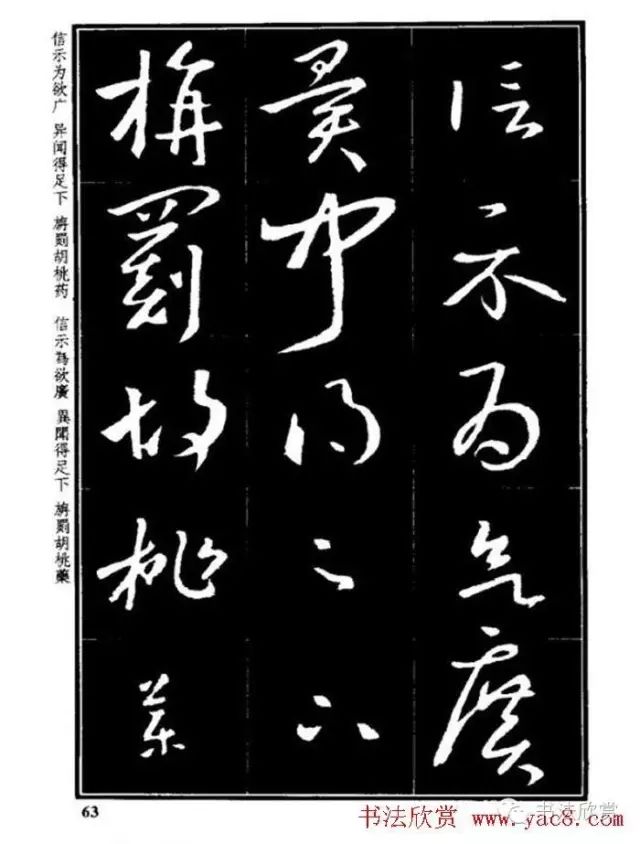 信示为欲广 异闻得足下 旃罰胡桃药 信示為欲廣 異聞得足下 旃罰胡桃藥
信示为欲廣
異闻得足下
旃罰胡桃藥
63
书法欣赏
书法欣赏 www.yac8.com